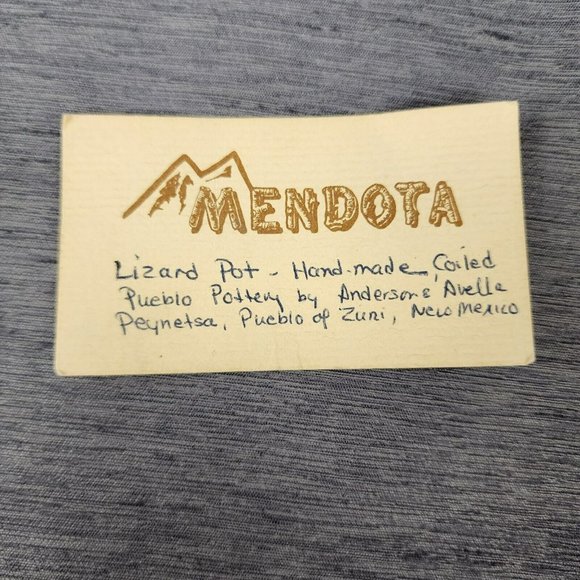 MENDOTA
Lizard Pot - Hand-made Coiled
Pueblo Pottery by Anderson & Avelle
Peynetsa, Pueblo of Zuni, New Mexico